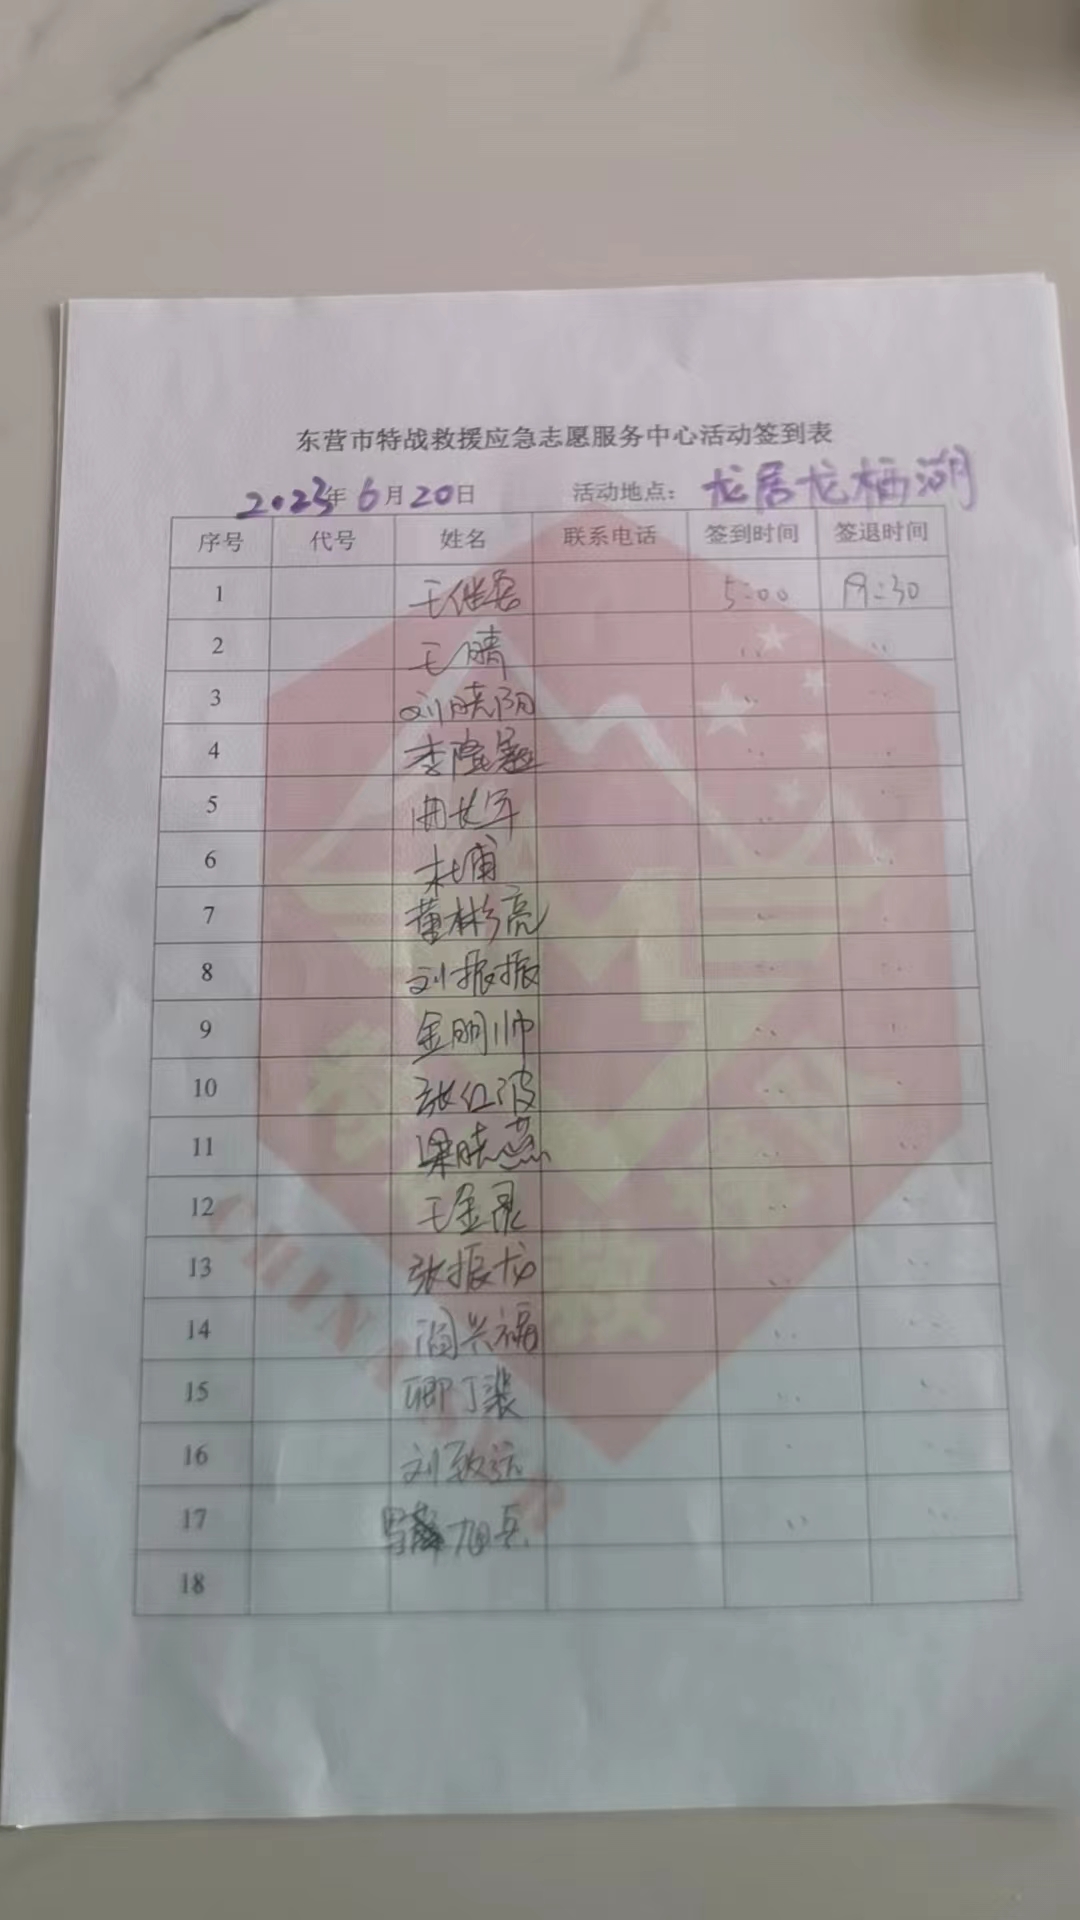 东营市特战救援应急志愿服务中心活动签到表
2023年6月20日 活动地点：龙居龙栖湖
序号 代号 姓名 联系电话 签到时间 签退时间
1 5:00 19:30
2 王晴
3 刘晓阳
4
5 曲长军
6 杜甫
7 董彬亮
8 刘振振
9 金明帅
10 张红波
11 梁晓燕
12 王金录
13 张振龙
14 阎兴福
15
16 刘致远
17 旭兵
18
CHINA